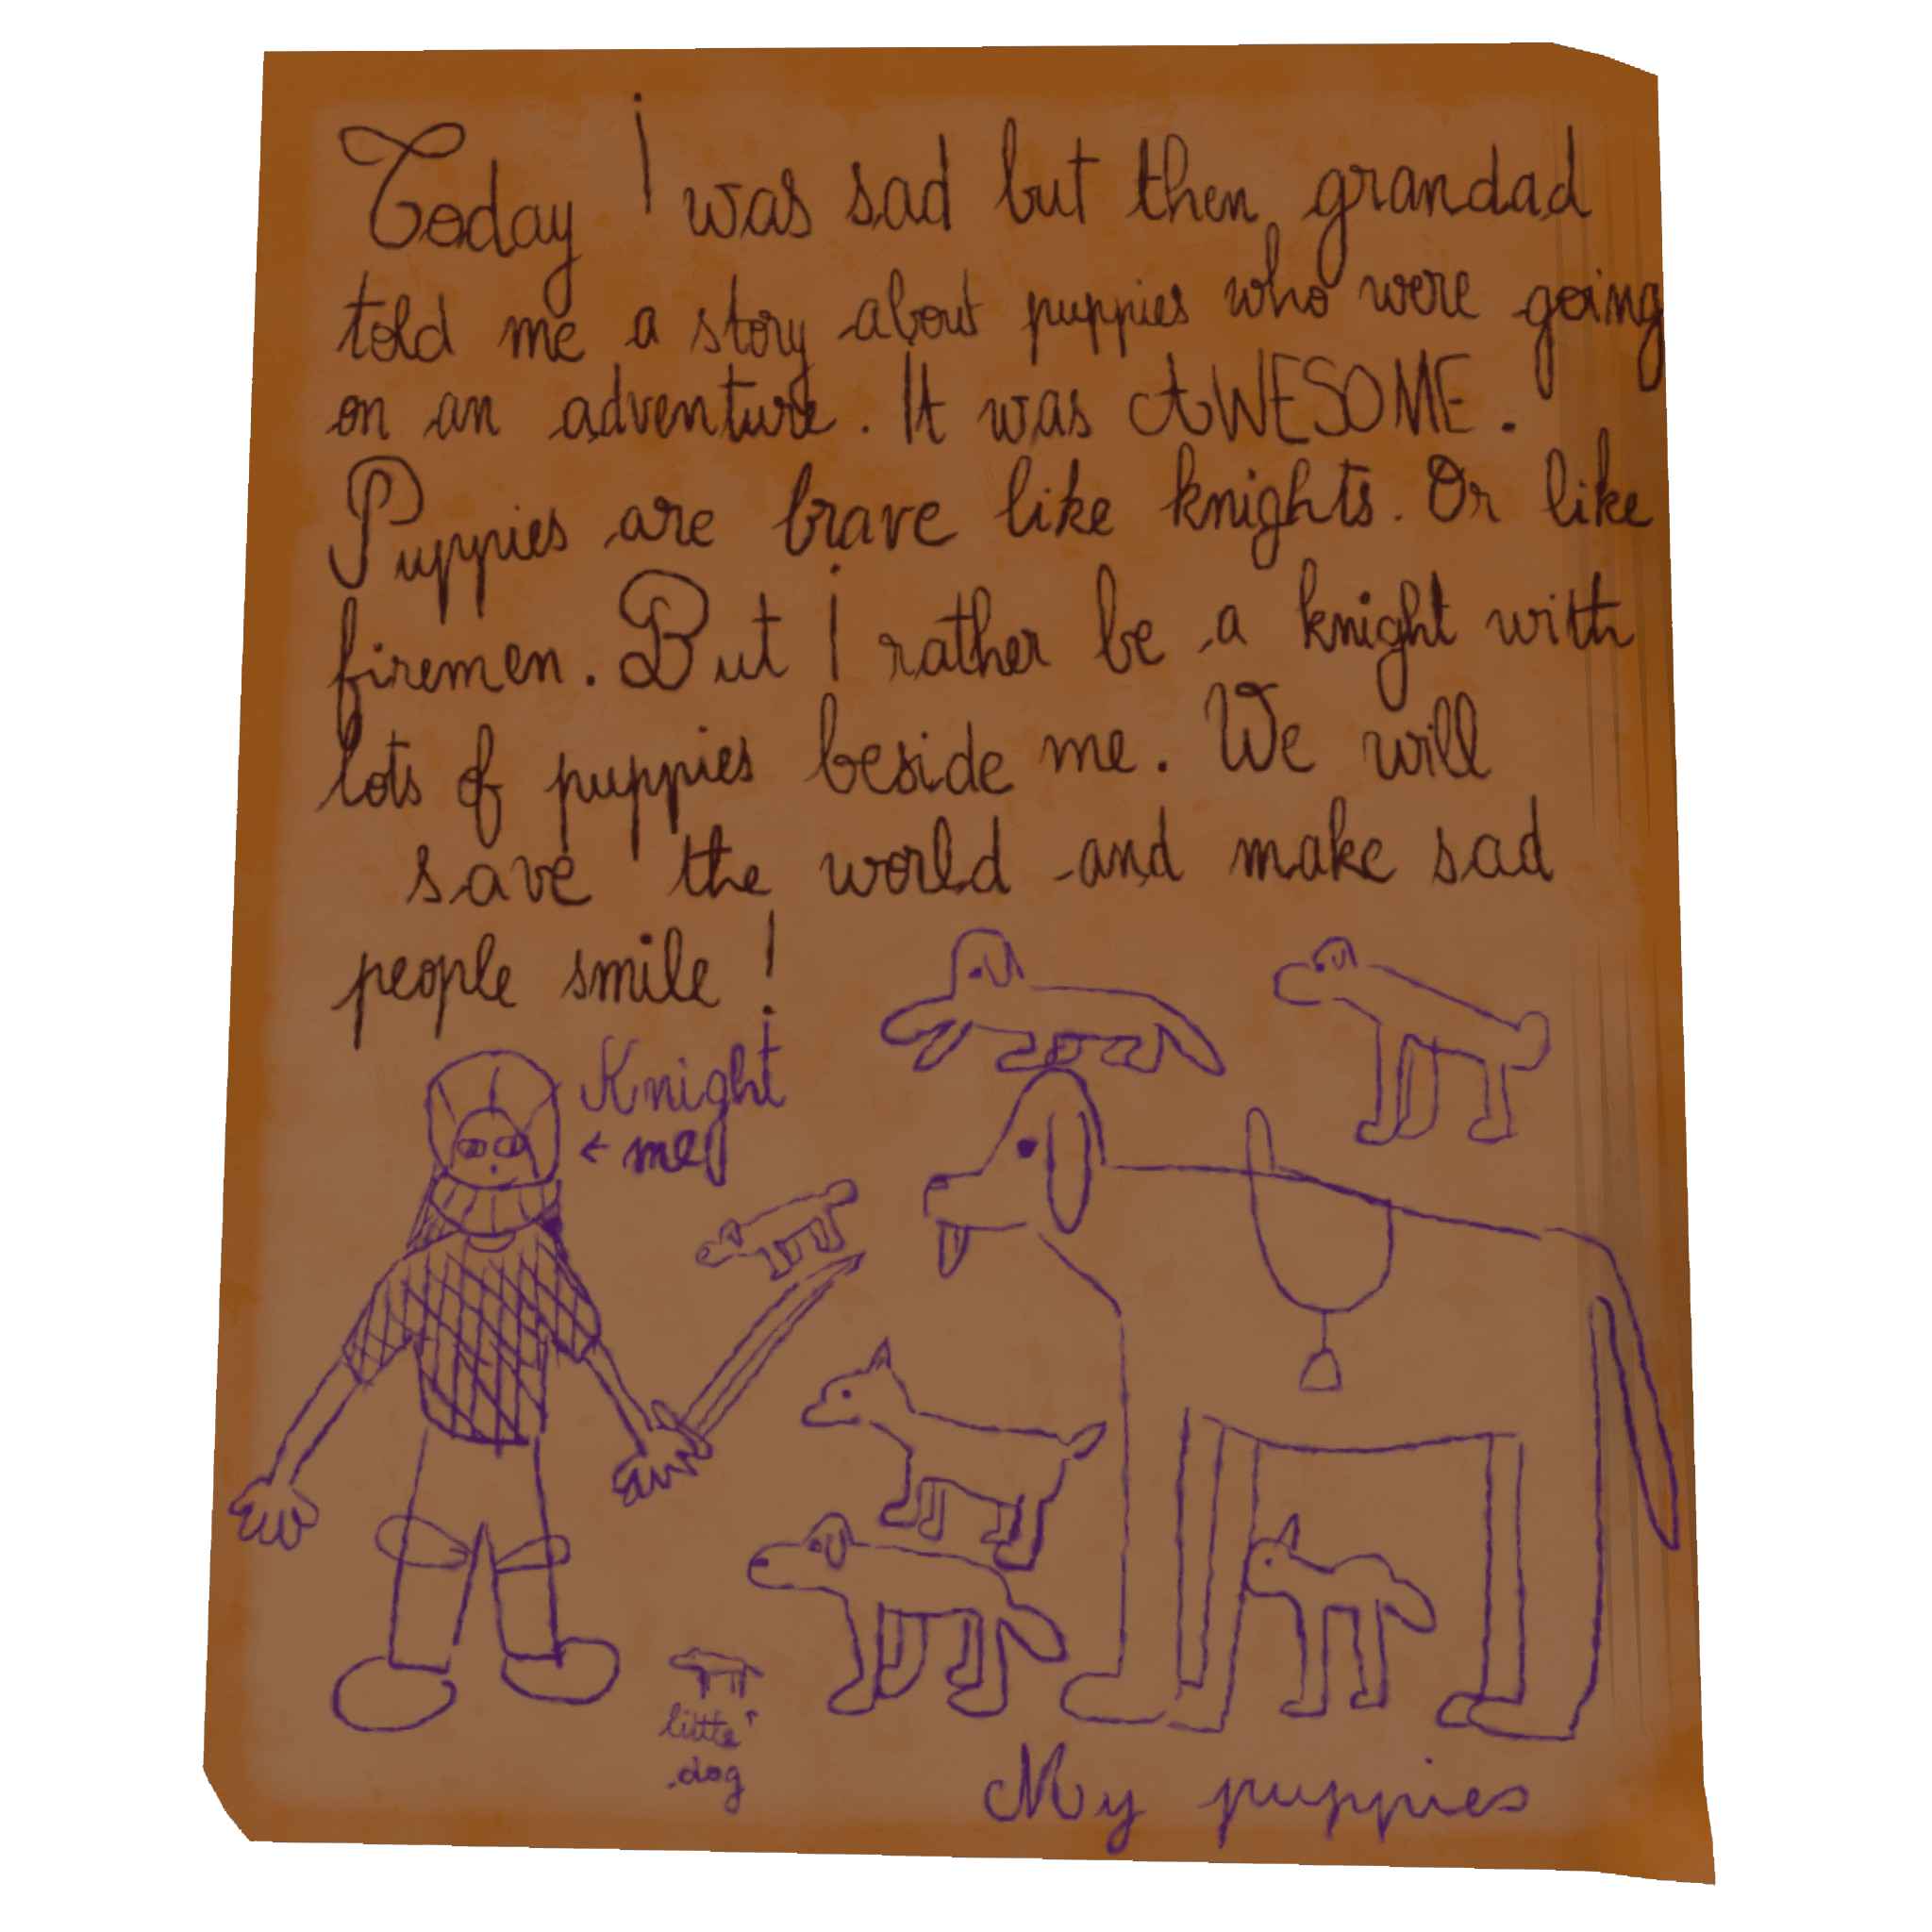 Today I was sad but then grandad
told me a story about puppies who were going
on an adventure. It was AWESOME.
Puppies are brave like knights. Or like
firemen. But I rather be a knight with
lots of puppies beside me. We will
save the world and make sad
people smile!
Knight
← me
little
dog
My puppies